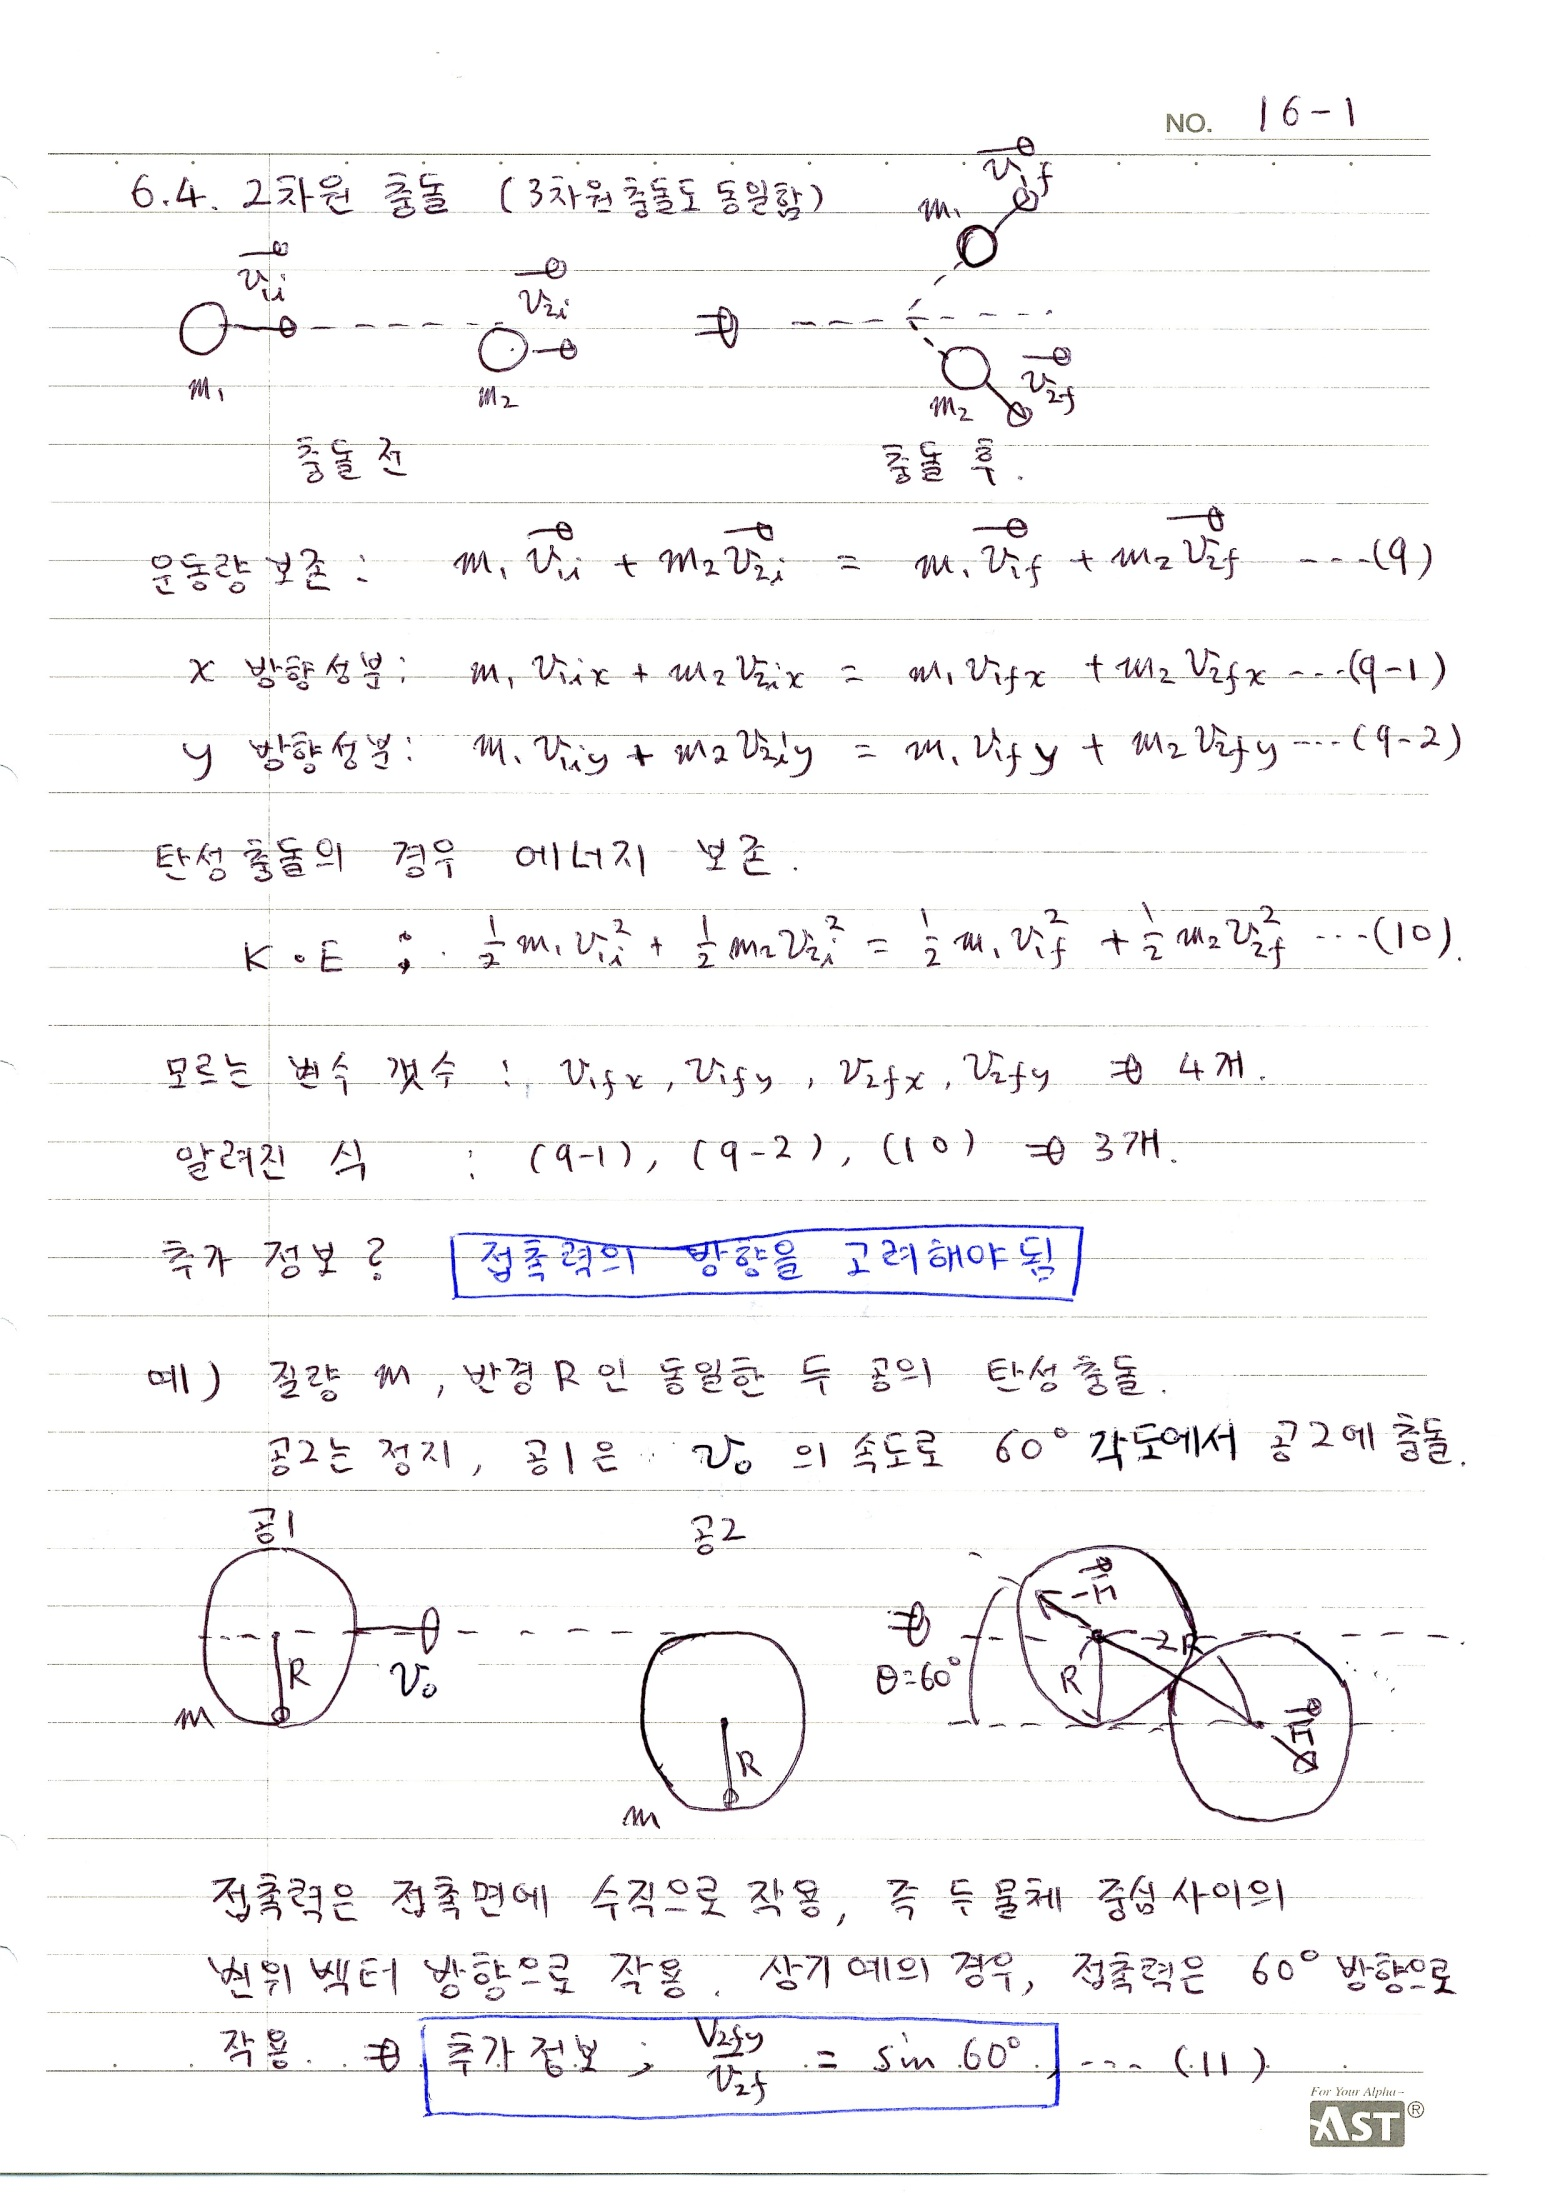 NO. 16-1
6.4. 2차원 충돌 (3차원충돌도 동일함)
m₁ v⃗₁f
v⃗₁i v⃗₂i ⇒
m₁ m₂ m₂ v⃗₂f
충돌 전 충돌 후.
운동량 보존 : m₁v⃗₁i + m₂v⃗₂i = m₁v⃗₁f + m₂v⃗₂f ----(9)
x 방향성분: m₁v₁ix + m₂v₂ix = m₁v₁fx + m₂v₂fx ----(9-1)
y 방향성분: m₁v₁iy + m₂v₂iy = m₁v₁fy + m₂v₂fy ----(9-2)
탄성충돌의 경우 에너지 보존.
K.E ; ½m₁v₁i² + ½m₂v₂i² = ½m₁v₁f² + ½m₂v₂f² ---(10).
모르는 변수 갯수 : v₁fx, v₁fy, v₂fx, v₂fy ⇒ 4개.
알려진 식 : (9-1), (9-2), (10) ⇒ 3개.
추가 정보? 접촉력의 방향을 고려해야됨
예) 질량 m, 반경 R인 동일한 두 공의 탄성충돌.
공2는 정지, 공1은 v₀ 의 속도로 60° 각도에서 공2에 충돌.
공1 공2
m R v₀ m R ⇒ θ=60° -n⃗ R 2R n⃗
접촉력은 접촉면에 수직으로 작용, 즉 두 물체 중심사이의
변위 벡터 방향으로 작용. 상기 예의 경우, 접촉력은 60° 방향으로
작용. ⇒ 추가정보; v₂fy/v₂f = sin 60° ---- (11)
For Your Alpha~
AST®